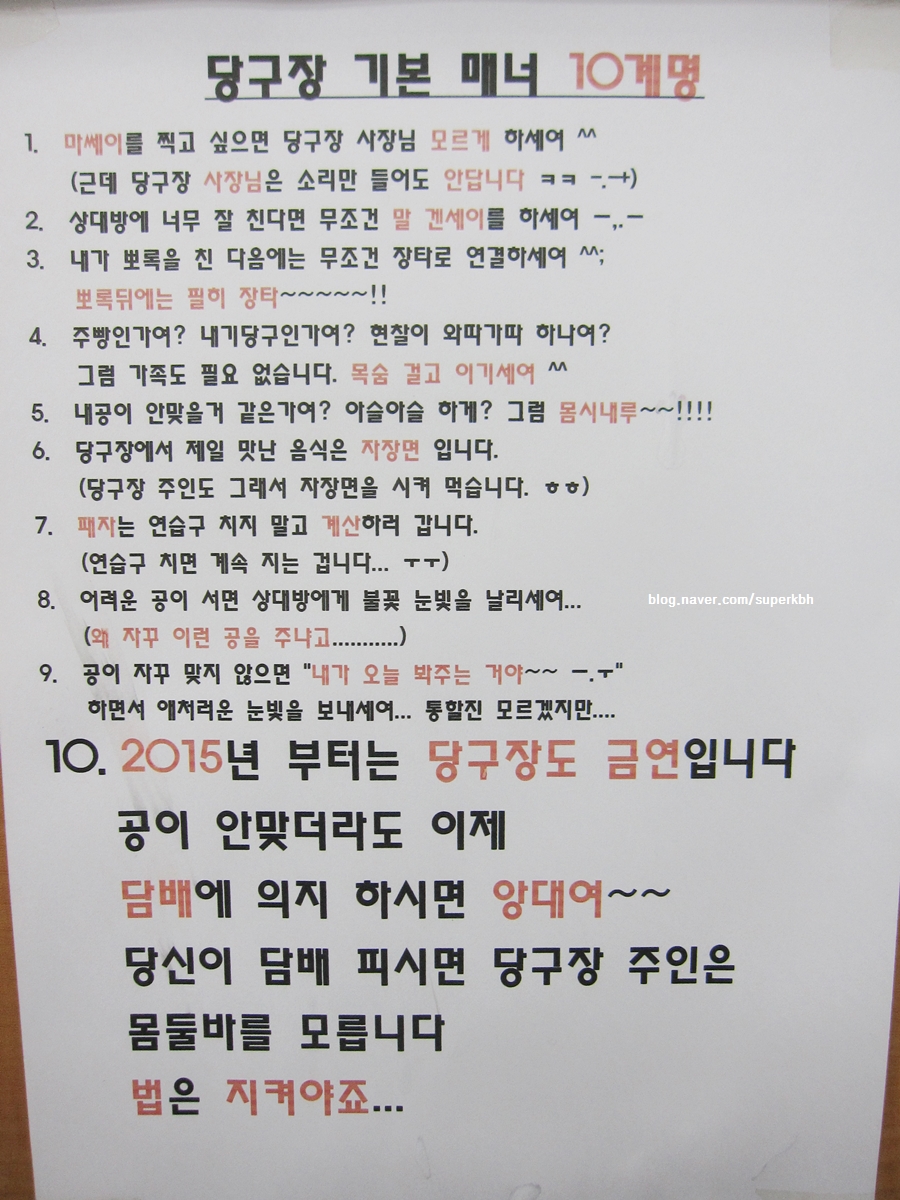 당구장 기본 매너 10계명
1. 마쎄이를 찍고 싶으면 당구장 사장님 모르게 하세여 ^^
(근데 당구장 사장님은 소리만 들어도 안답니다 ㅋㅋ -.-+)
2. 상대방에 너무 잘 친다면 무조건 말 겐세이를 하세여 -,.-
3. 내가 뽀록을 친 다음에는 무조건 장타로 연결하세여 ^^;
뽀록뒤에는 필히 장타~~~~~!!
4. 주빵인가여? 내기당구인가여? 현찰이 와따가따 하나여?
그럼 가족도 필요 없습니다. 목숨 걸고 이기세여 ^^
5. 내공이 안맞을거 같은가여? 아슬아슬 하게? 그럼 몸시내루~~!!!!
6. 당구장에서 제일 맛난 음식은 자장면 입니다.
(당구장 주인도 그래서 자장면을 시켜 먹습니다. ㅎㅎ)
7. 패자는 연습구 치지 말고 계산하러 갑니다.
(연습구 치면 계속 지는 겁니다... ㅜㅜ)
8. 어려운 공이 서면 상대방에게 불꽃 눈빛을 날리세여...
blog.naver.com/superkbh
(왜 자꾸 이런 공을 주냐고...........)
9. 공이 자꾸 맞지 않으면 "내가 오늘 봐주는 거야~~ ㅡ.ㅜ"
하면서 애처러운 눈빛을 보내세여... 통할진 모르겠지만....
10. 2015년 부터는 당구장도 금연입니다
공이 안맞더라도 이제
담배에 의지 하시면 앙대여~~
당신이 담배 피시면 당구장 주인은
몸둘바를 모릅니다
법은 지켜야죠...